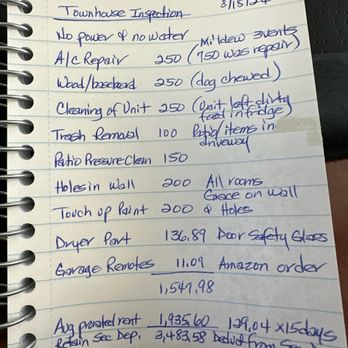 Townhouse Inspection 8/15/24
No power & no water
Mildew events
A/C Repair 250 (750 was repair)
Wood/baseboard 250 (dog chewed)
Cleaning of Unit 250 (Unit left dirty
food in fridge)
Trash Removal 100 Patio items in
driveway
Patio Pressure Clean 150
Holes in Wall 200 All rooms
Grace on wall
Touch up Paint 200 & Holes
Dryer Part 136.89 Door Safety Glass
Garage Remotes 11.09 Amazon order
1,547.98
Aug prorated rent 1,935.60 129.04 x 15 days
Retain Sec Dep. 3,483.58 Deduct from